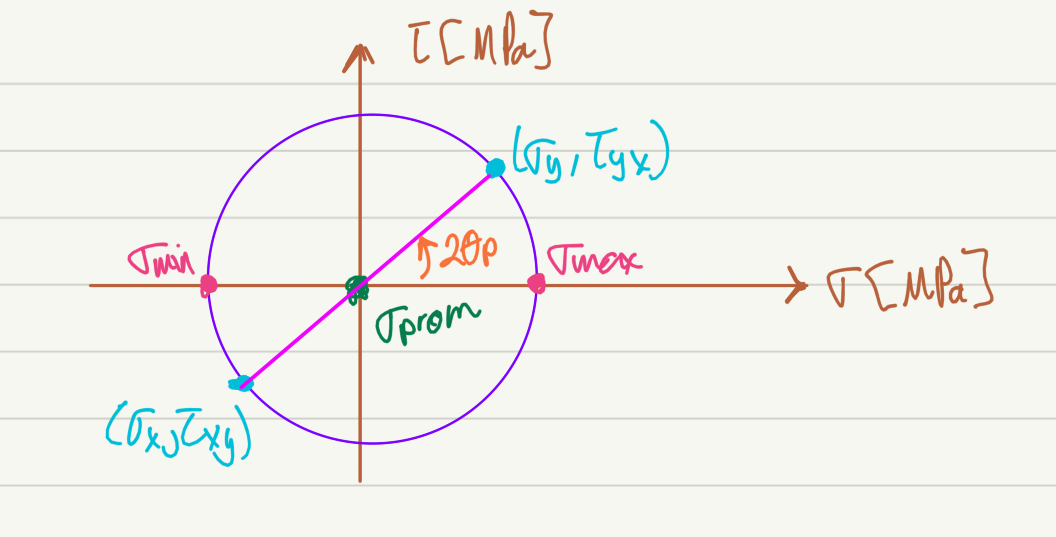 τ [MPa]
(σy, τyx)
σmin
2θp
σmax
σ [MPa]
σprom
(σx, τxy)